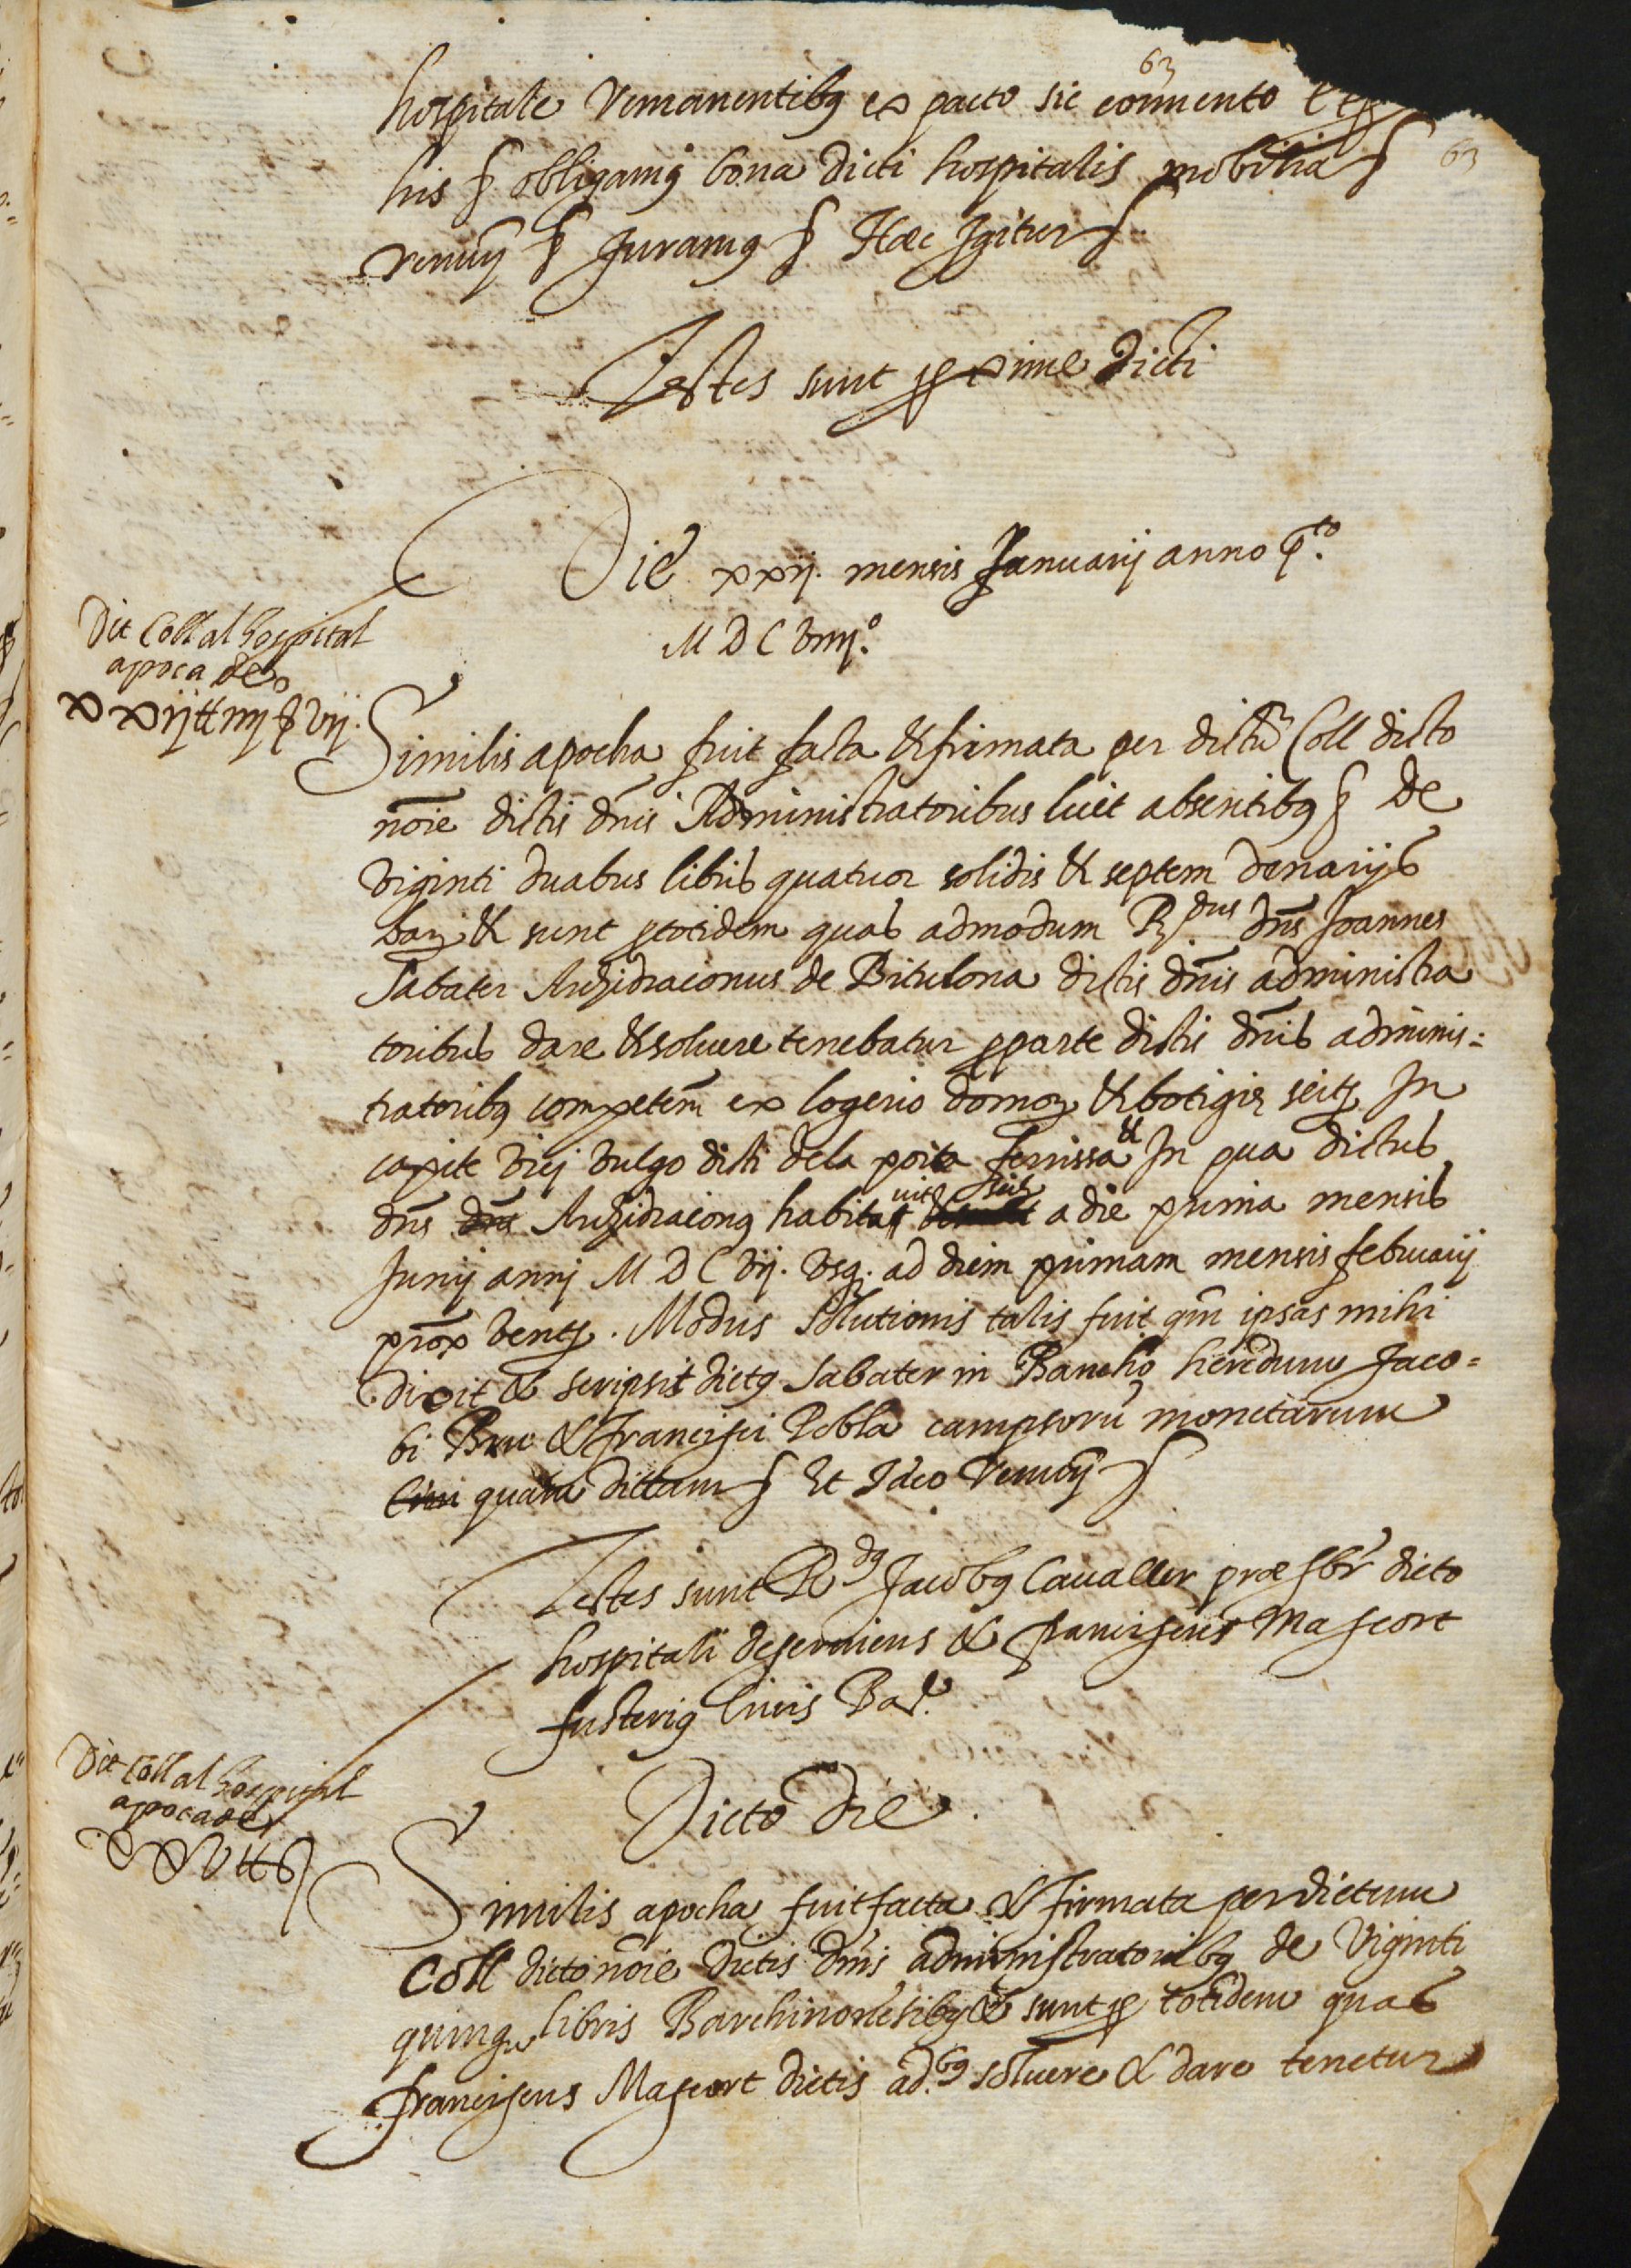 63
hospitale remanentibꝫ ex pacto sic convento
63
his § obligamꝫ bona dicti hospitalis mobilia §
renuñ § Juramꝫ § Hæc Igitur §
Testes sunt proxime dicti
Die xxij. mensis Januarij anno p.to
M D C viiij.º
Dit Coll al hospital
apoca de
xxij ll iiij s vij.
Similis apocha fuit facta & firmata per dictũ Coll dicto
nõie dictis dñis Administratoribus licet absentibꝫ § de
viginti duabus libris quatuor solidis & septem denarijs
bar̃ & sunt ꝑtotidem quas admodum R.dus dñs Joannes
Sabater Archidiaconus de Bitulona dictis dñis administra
toribus dare & solvere tenebatur ꝑ parte dictis dñis adminis=
tratoribꝫ competeñ ex logerio domoꝝ & botigiæ seitꝫ In
capite vici vulgo dicti dela porta ferrissa & In qua dictus
dñs Archidiaconꝫ habitavit a die prima mensis
Junij anni M D C vij. usqꝫ ad diem primam mensis februarij
prox̃ ventꝫ. Modus solutionis talis fuit qm̃ ipsas mihi
dixit & scripsit dictꝫ Sabater in Bancho heredum Jaco=
bi Bru & Francisci Pobla campsorũ monetarum
quam dictam § Et Ideo renuñ §
Testes sunt R.dꝫ Jacobꝫ Cavaller præsbr̃ dicto
hospitali deserviens & Franciscus Mascort
fusterius Civis Bar.
Dit Coll al hospital
apoca de
xxv ll s
Dicto die
Similis apocha fuit facta & firmata per dictum
Coll dicto nõie dictis dñis administratoribꝫ de viginti
quinqꝫ libris Barchinonẽsibꝫ & sunt ꝑ totidem quas
Franciscus Mascort dictis ad.bꝫ solvere & dare tenetur